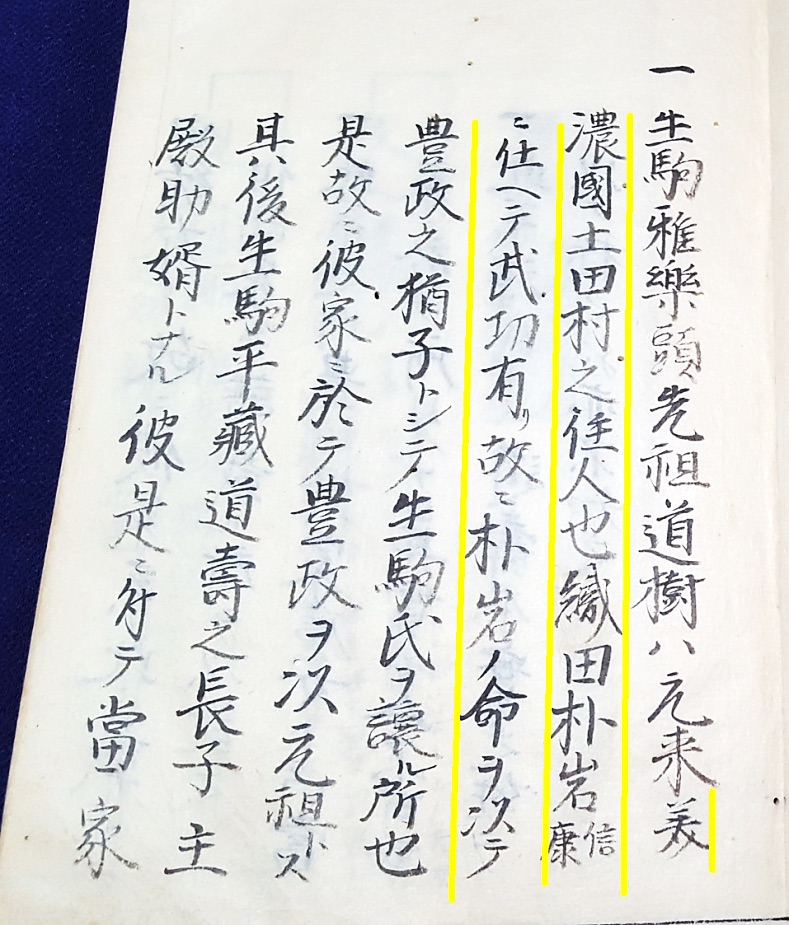 一 生駒雅樂頭先祖道樹ハ元来美
濃國土田村之住人也織田朴岩信康
ニ仕ヘテ武功有リ故ニ朴岩ノ命ヲ次テ
豊政之猶子トシテ生駒氏ヲ譲ル所也
是故ニ彼家ニ於テ豊政ヲ次元祖トス
其後生駒平藏道壽之長子主
殿助婿トナル彼是ニ付テ當家